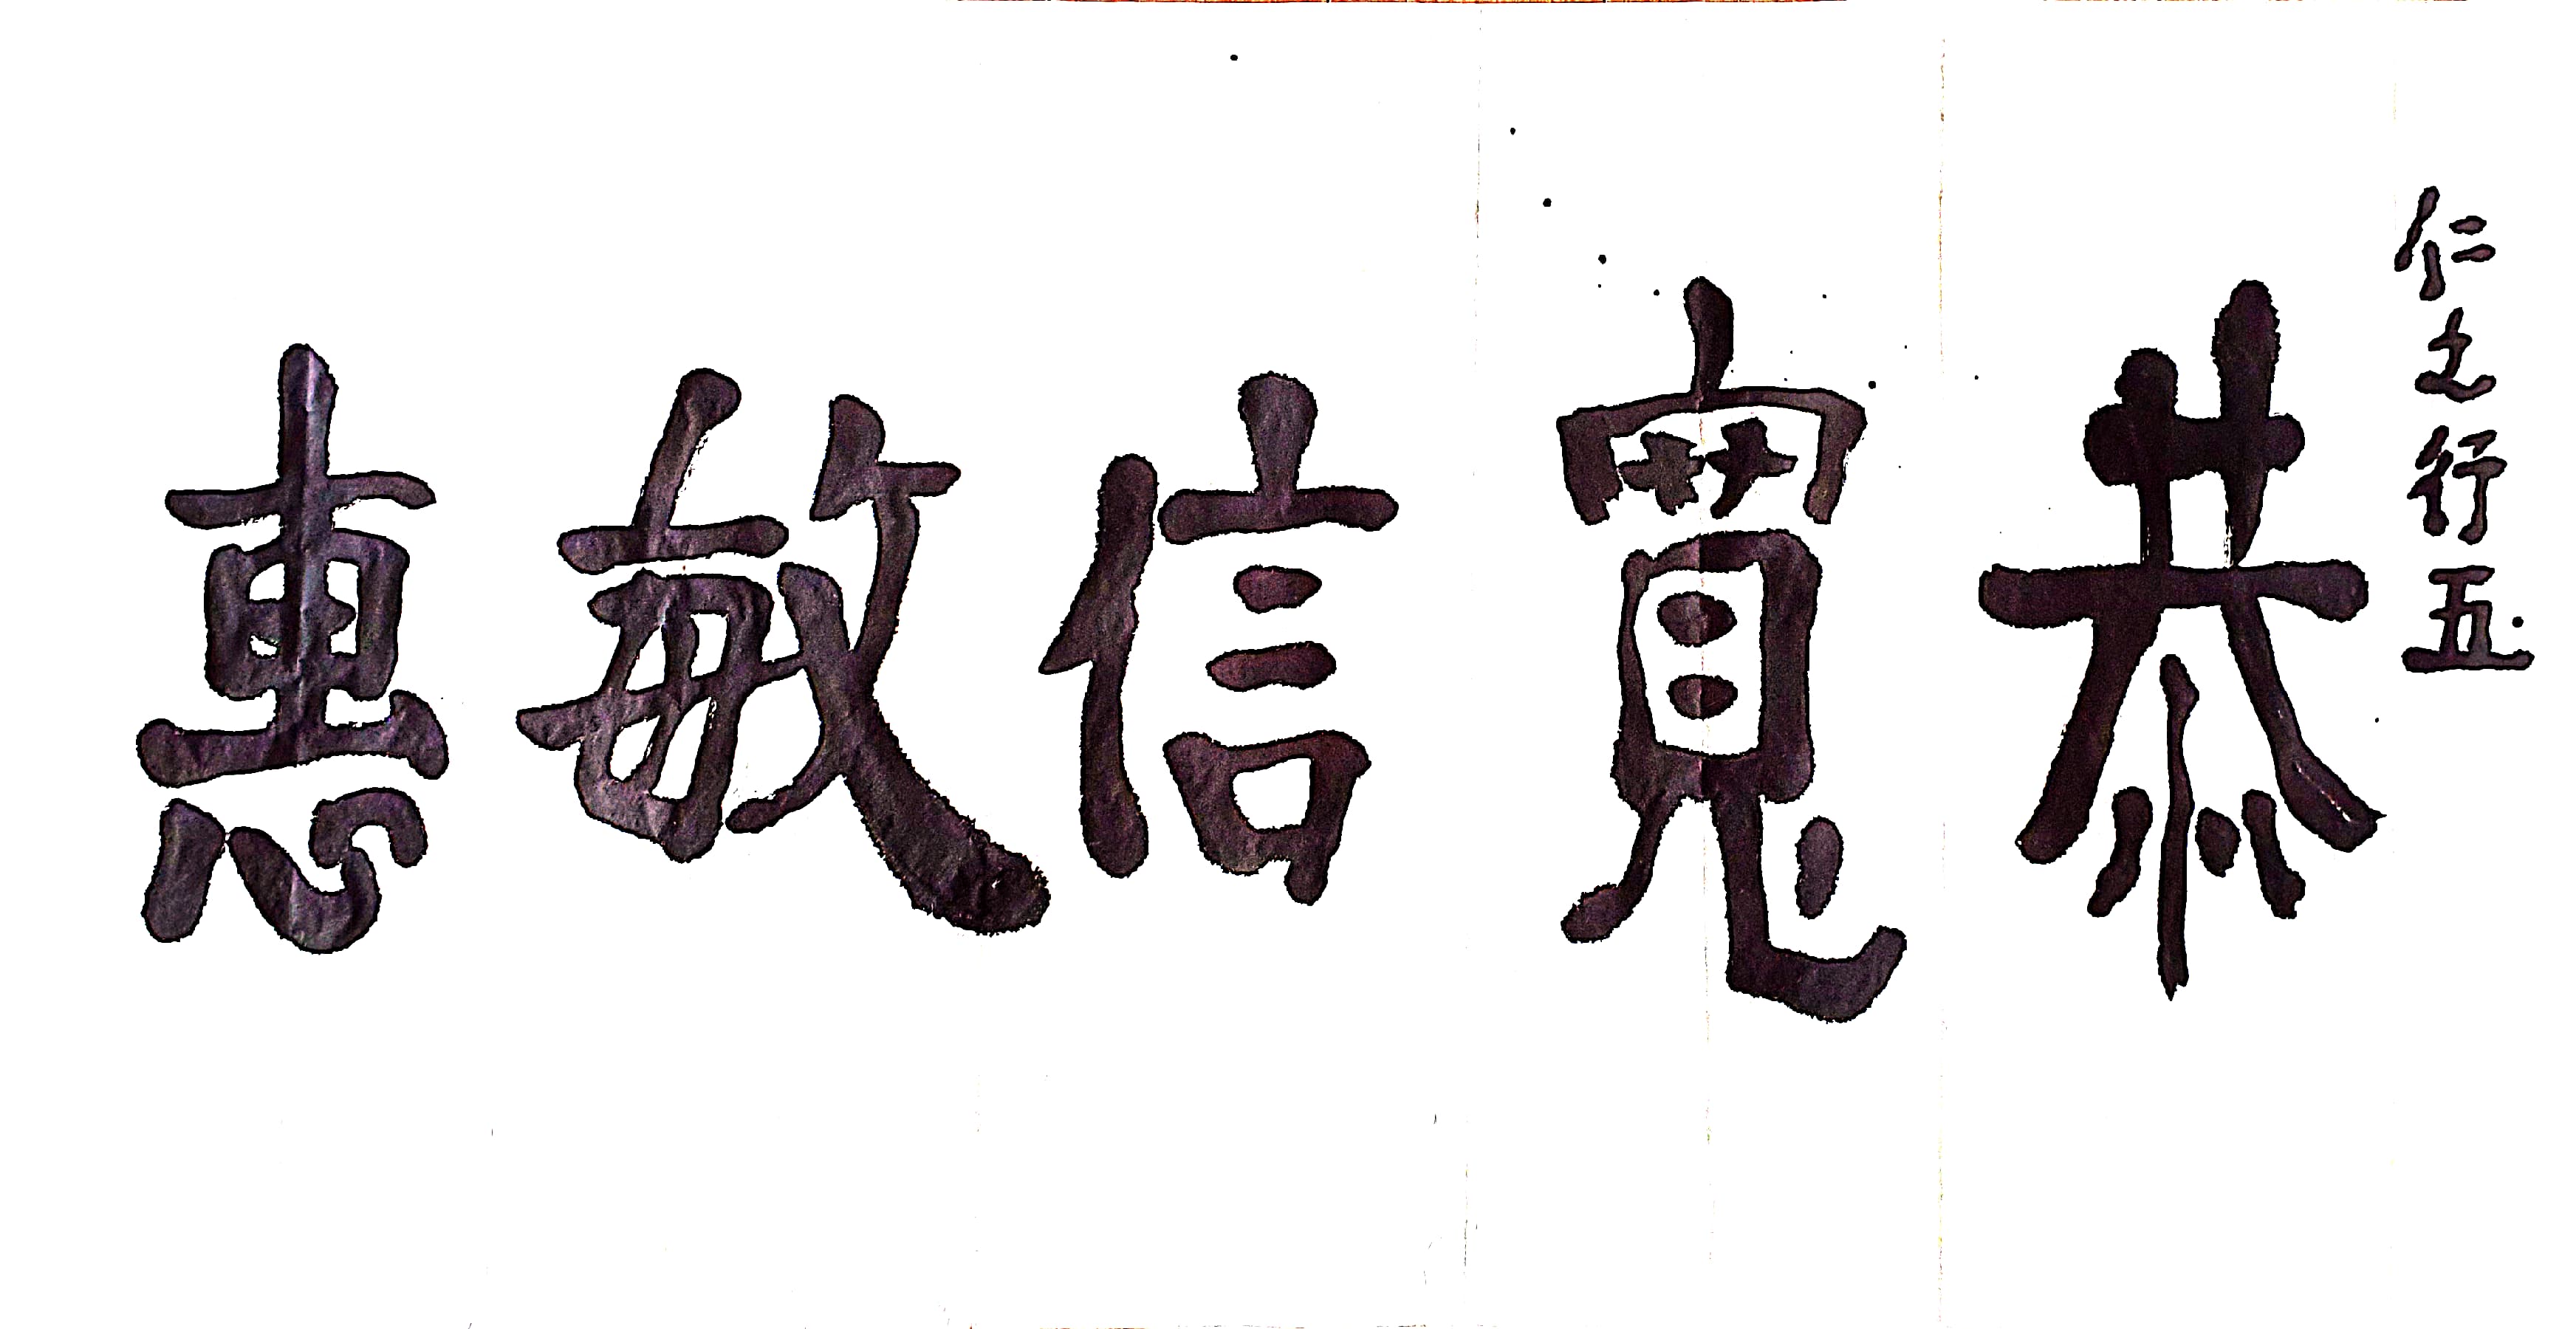 仁之行五
恭寬信敏惠